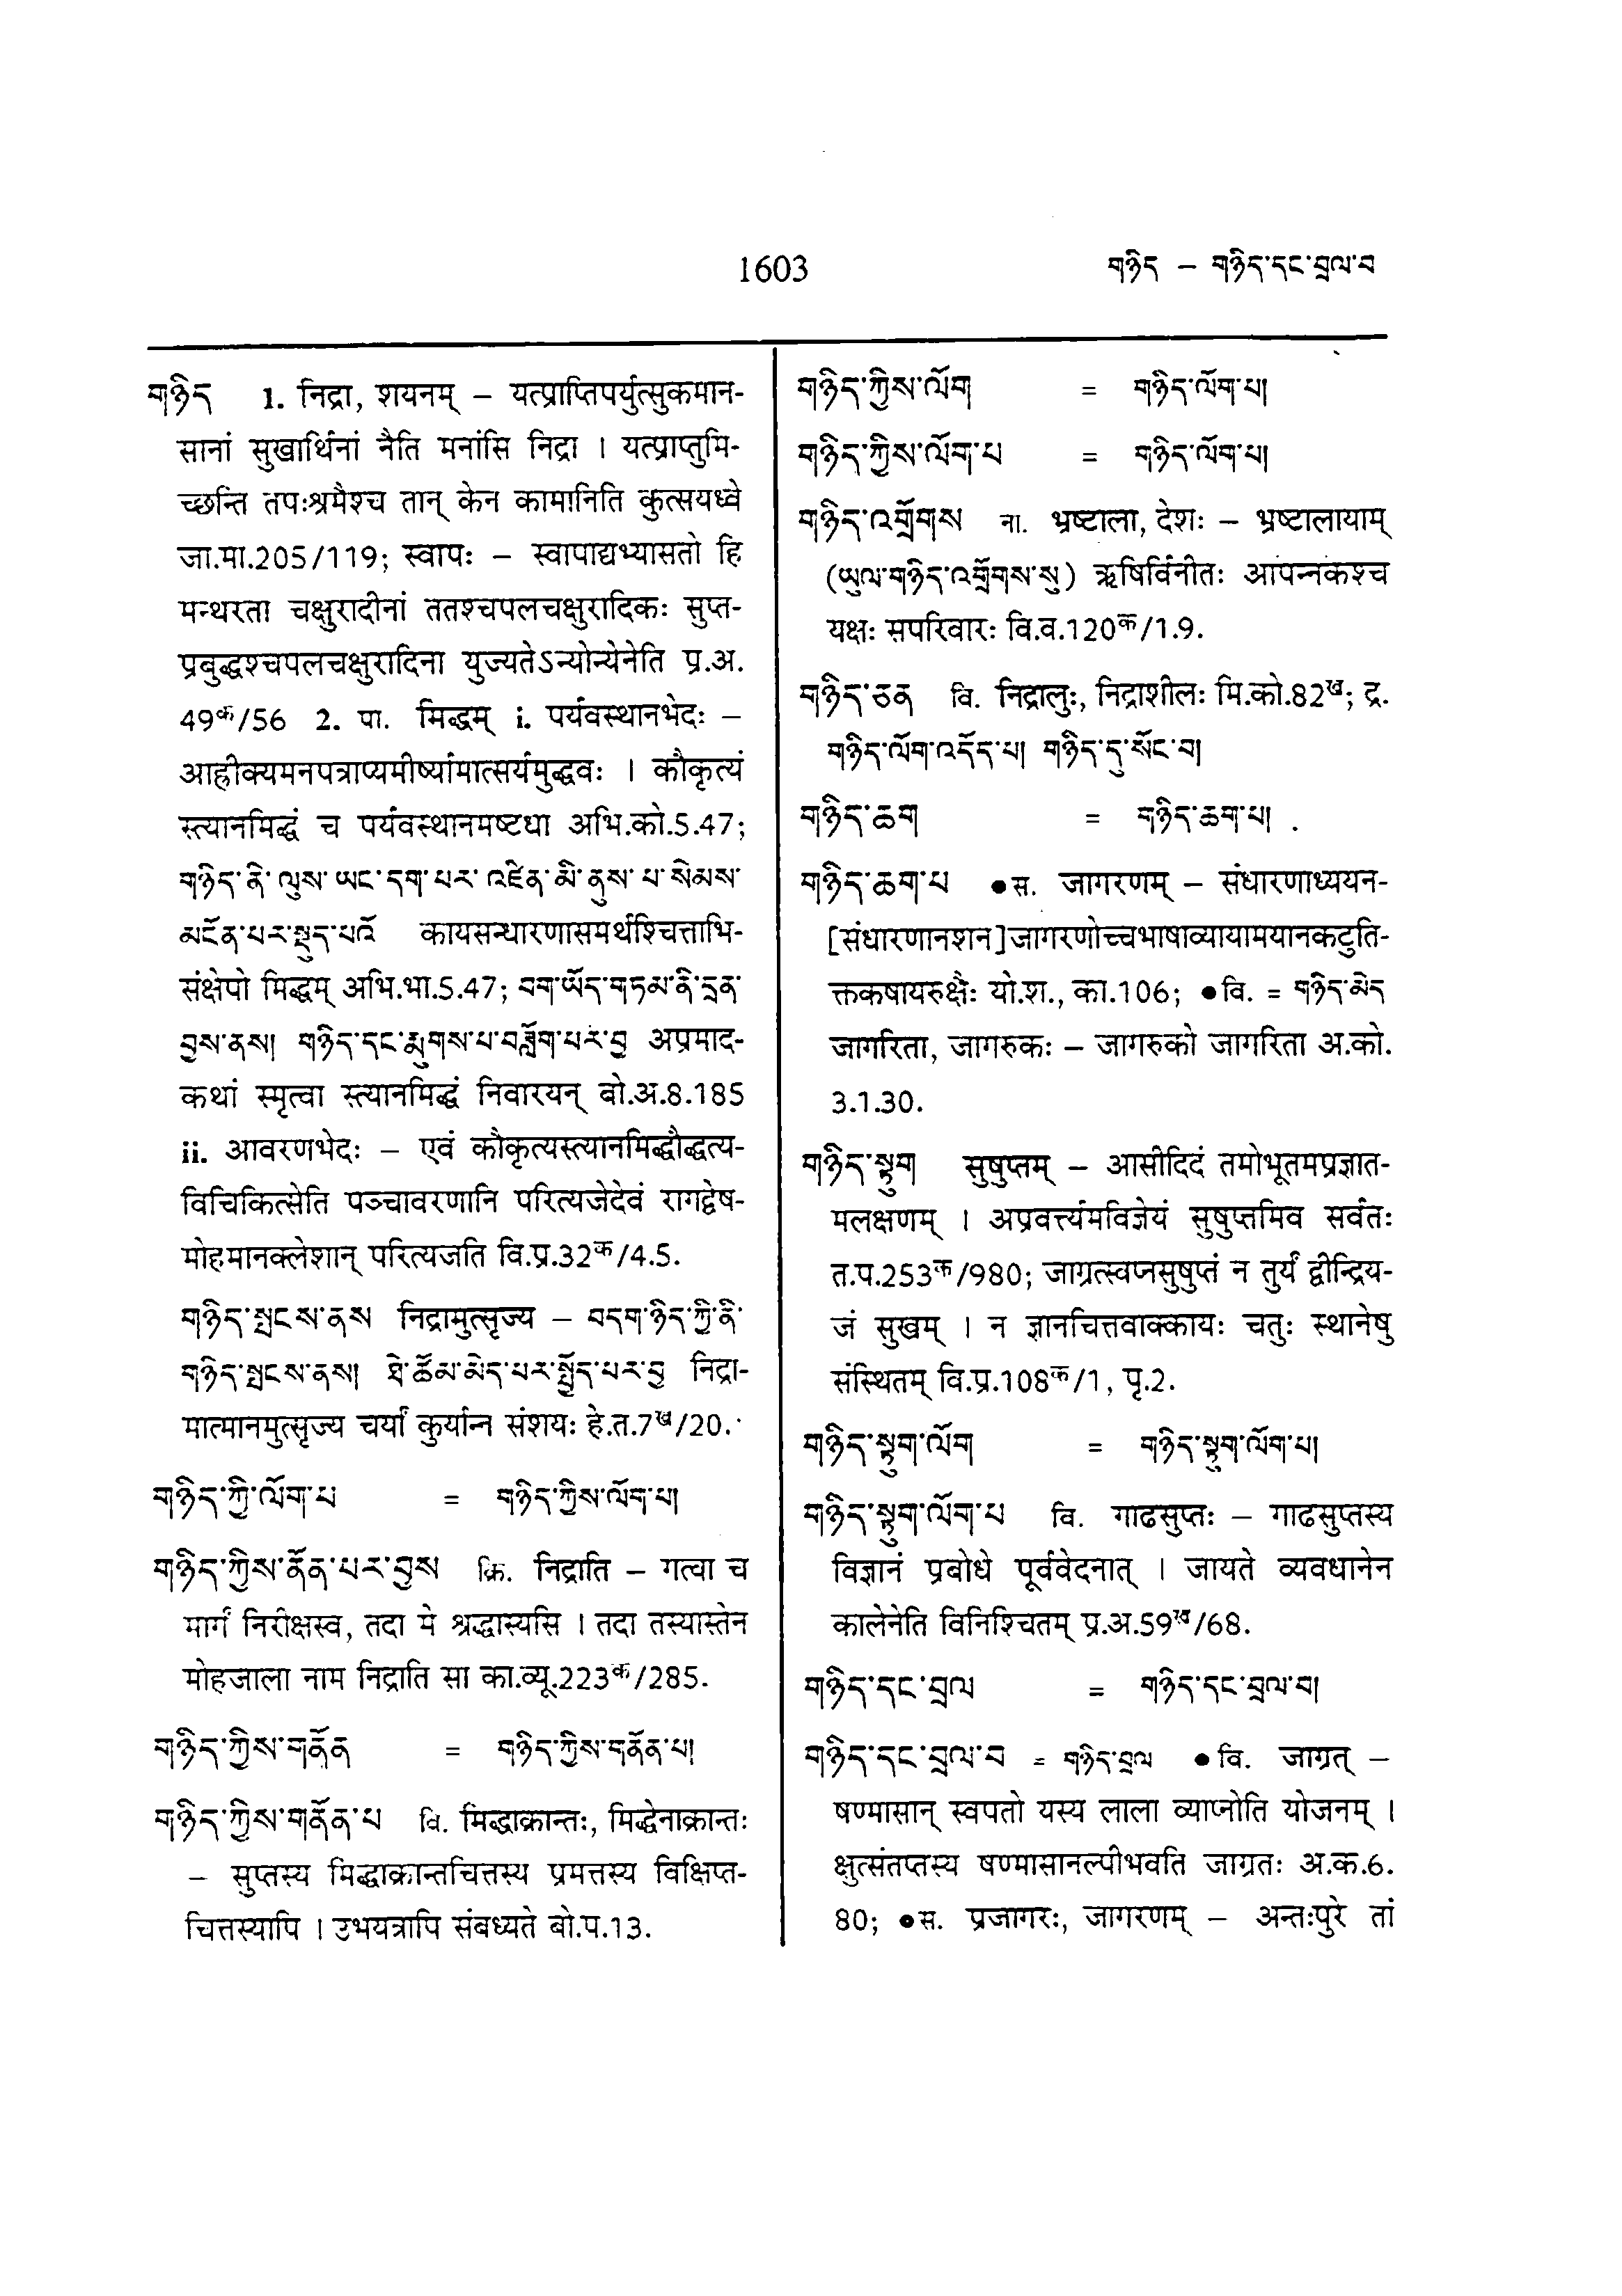 1603
གཉིད – གཉིད་དང་བྲལ་བ
གཉིད 1. निद्रा, शयनम् – यत्प्राप्तिपर्युत्सुकमान-
सानां सुखार्थिनां नैति मनांसि निद्रा । यत्प्राप्तुमि-
च्छन्ति तपःश्रमैश्च तान् केन कामानिति कुत्सयध्वे
जा.मा.205/119; स्वापः – स्वापाद्यभ्यासतो हि
मन्थरता चक्षुरादीनां ततश्चपलचक्षुरादिकः सुप्त-
प्रबुद्धश्चपलचक्षुरादिना युज्यतेऽन्योन्येनेति प्र.अ.
49क/56 2. पा. मिद्धम् i. पर्यवस्थानभेदः –
आह्रीक्यमनपत्राप्यमीर्ष्यामात्सर्यमुद्धवः । कौकृत्यं
स्त्यानमिद्धं च पर्यवस्थानमष्टधा अभि.को.5.47;
གཉིད་ནི་ ལུས་ ཡང་དག་པར་ འཛིན་མི་ནུས་ པ་ སེམས་
མངོན་པར་སྡུད་པའོ कायसन्धारणासमर्थश्चित्ताभि-
संक्षेपो मिद्धम् अभि.भा.5.47; བག་ཡོད་གཏམ་ནི་དྲན་
བྱས་ནས། གཉིད་དང་རྨུགས་པ་བཟློག་པར་བྱ अप्रमाद-
कथां स्मृत्वा स्त्यानमिद्धं निवारयन् बो.अ.8.185
ii. आवरणभेदः – एवं कौकृत्यस्त्यानमिद्धौद्धत्य-
विचिकित्सेति पञ्चावरणानि परित्यजेदेवं रागद्वेष-
मोहमानक्लेशान् परित्यजति वि.प्र.32क/4.5.
གཉིད་སྤངས་ནས निद्रामुत्सृज्य – བདག་ཉིད་ཀྱི་ནི་
གཉིད་སྤངས་ནས། ཐེ་ཚོམ་མེད་པར་སྤྱོད་པར་བྱ निद्रा-
मात्मानमुत्सृज्य चर्यां कुर्यान्न संशयः हे.त.7ख/20.
གཉིད་ཀྱི་ལོག་པ = གཉིད་ཀྱིས་ལོག་པ།
གཉིད་ཀྱིས་ནོན་པར་བྱས क्रि. निद्राति – गत्वा च
मार्गं निरीक्षस्व, तदा मे श्रद्धास्यसि । तदा तस्यास्तेन
मोहजाला नाम निद्राति सा का.व्यू.223क/285.
གཉིད་ཀྱིས་གནོན = གཉིད་ཀྱིས་གནོན་པ།
གཉིད་ཀྱིས་གནོན་པ वि. मिद्धाक्रान्तः, मिद्धेनाक्रान्तः
– सुप्तस्य मिद्धाक्रान्तचित्तस्य प्रमत्तस्य विक्षिप्त-
चित्तस्यापि । उभयत्रापि संबध्यते बो.प.13.
གཉིད་ཀྱིས་ལོག = གཉིད་ལོག་པ།
གཉིད་ཀྱིས་ལོག་པ = གཉིད་ལོག་པ།
གཉིད་འགྲོགས ना. भ्रष्टाला, देशः – भ्रष्टालायाम्
(ཡུལ་གཉིད་འགྲོགས་སུ) ऋषिर्विनीतः आपन्नकश्च
यक्षः सपरिवारः वि.व.120क/1.9.
གཉིད་ཅན वि. निद्रालुः, निद्राशीलः मि.को.82ख; द्र.
གཉིད་ལོག་འདོད་པ། གཉིད་དུ་སོང་བ།
གཉིད་ཆག = གཉིད་ཆག་པ། .
གཉིད་ཆག་པ ●स. जागरणम् – संधारणाध्ययन-
[संधारणानशन]जागरणोच्चभाषाव्यायामयानकटुति-
क्तकषायरुक्षैः यो.श., का.106; ●वि. = གཉིད་མེད
जागरिता, जागरुकः – जागरुको जागरिता अ.को.
3.1.30.
གཉིད་སྟུག सुषुप्तम् – आसीदिदं तमोभूतमप्रज्ञात-
मलक्षणम् । अप्रवर्त्त्यमविज्ञेयं सुषुप्तमिव सर्वतः
त.प.253क/980; जाग्रत्स्वप्नसुषुप्तं न तुर्यं द्वीन्द्रिय-
जं सुखम् । न ज्ञानचित्तवाक्कायः चतुः स्थानेषु
संस्थितम् वि.प्र.108क/1, पृ.2.
གཉིད་སྟུག་ལོག = གཉིད་སྟུག་ལོག་པ།
གཉིད་སྟུག་ལོག་པ वि. गाढसुप्तः – गाढसुप्तस्य
विज्ञानं प्रबोधे पूर्ववेदनात् । जायते व्यवधानेन
कालेनेति विनिश्चितम् प्र.अ.59ख/68.
གཉིད་དང་བྲལ = གཉིད་དང་བྲལ་བ།
གཉིད་དང་བྲལ་བ = གཉིད་བྲལ ●वि. जाग्रत् –
षण्मासान् स्वपतो यस्य लाला व्याप्नोति योजनम् ।
क्षुत्संतप्तस्य षण्मासानल्पीभवति जाग्रतः अ.क.6.
80; ●स. प्रजागरः, जागरणम् – अन्तःपुरे तां